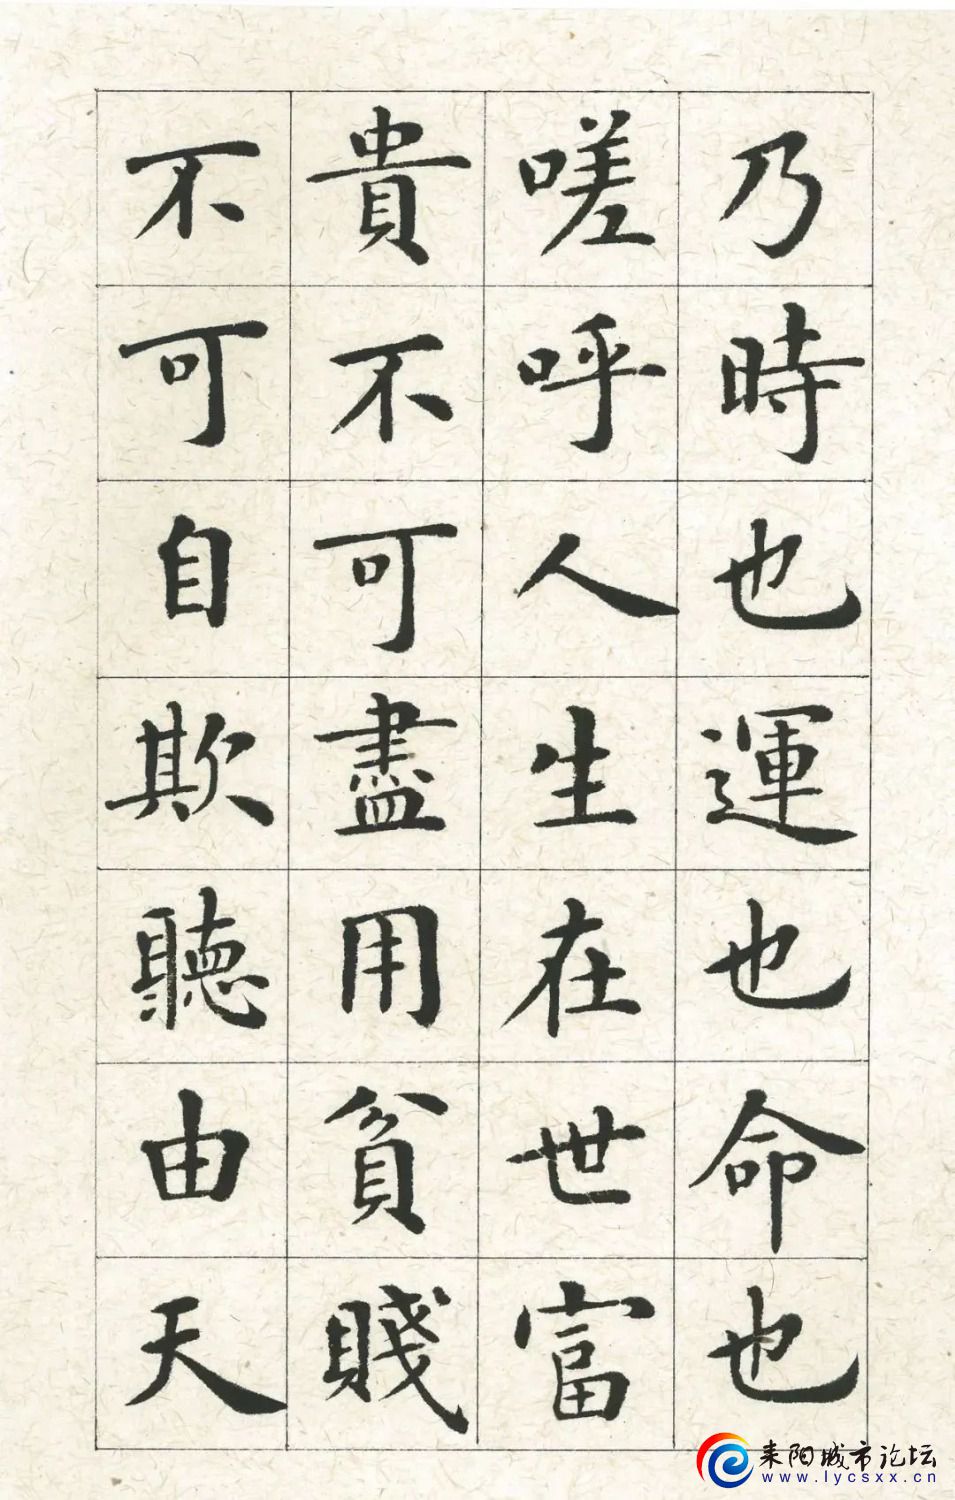 乃時也運也命也
嗟呼人生在世富
貴不可盡用貧賤
不可自欺聽由天
耒阳城市论坛
www.lycsxx.cn